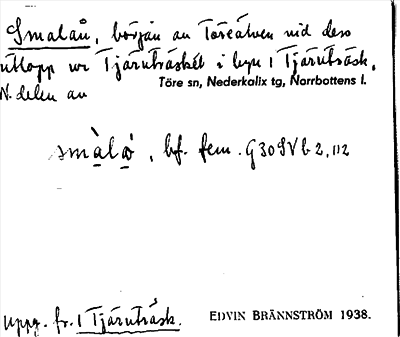 Smalån, början av Töreälven vid dess
utlopp ur Tjärutträsket i byn 1 Tjärutträsk,
Töre sn, Nederkalix tg, Norrbottens l.
N. delen av
smàlȯ, bf. fem. G30SVb2,112
Uppg. fr. 1 Tjärutträsk.
EDVIN BRÄNNSTRÖM 1938.